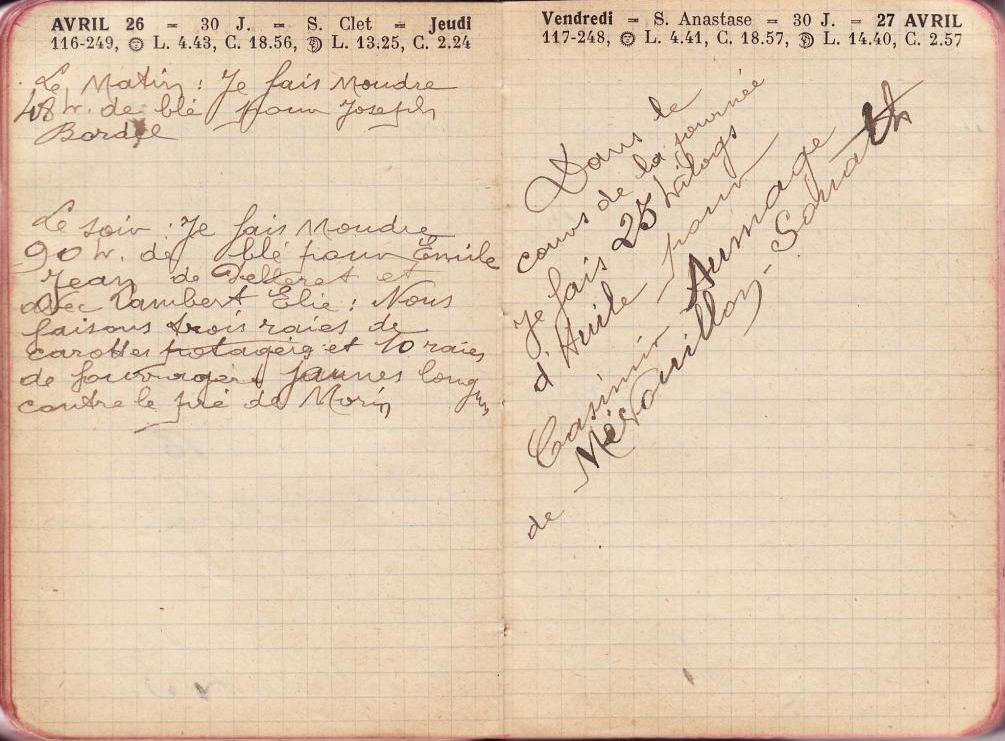 AVRIL 26 – 30 J. – S. Clet – Jeudi
116-249, L. 4.43, C. 18.56, L. 13.25, C. 2.24
Le Matin : Je fais moudre
48 k. de blé pour Joseph
Bordel
Le soir : Je fais moudre
90 k. de blé pour Émile
Jean de Pelleret et
avec Lambert Élie : Nous
faisons trois raies de
carottes potagèrs et 10 raies
de fourragèrs jaunes longues
contre le pré de Morin
Vendredi – S. Anastase – 30 J. – 27 AVRIL
117-248, L. 4.41, C. 18.57, L. 14.40, C. 2.57
Dans le
cours de la journée
Je fais 25 kilogs
d'Huile pour
Casimir Aumage
de Mévouillon -